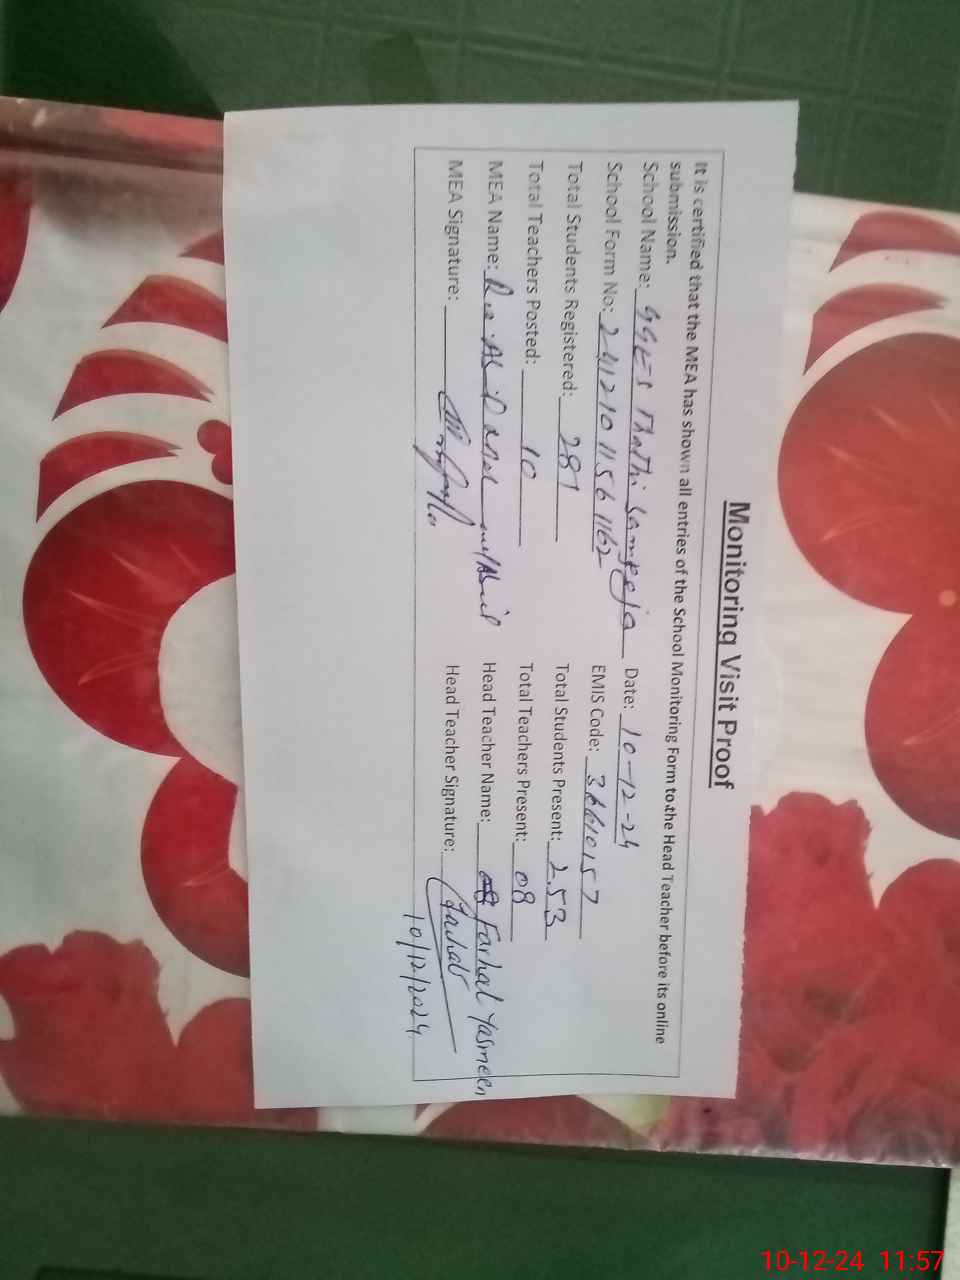 Monitoring Visit Proof
It is certified that the MEA has shown all entries of the School Monitoring Form to the Head Teacher before its online
submission.
School Name: GGES Thathi Sampeja Date: 10-12-24
School Form No: 24121011561162 EMIS Code: 36610157
Total Students Registered: 287 Total Students Present: 253
Total Teachers Posted: 10 Total Teachers Present: 08
MEA Name: Head Teacher Name: Farhat Yasmeen
MEA Signature: Head Teacher Signature: Farhat
10/12/2024
10-12-24 11:57